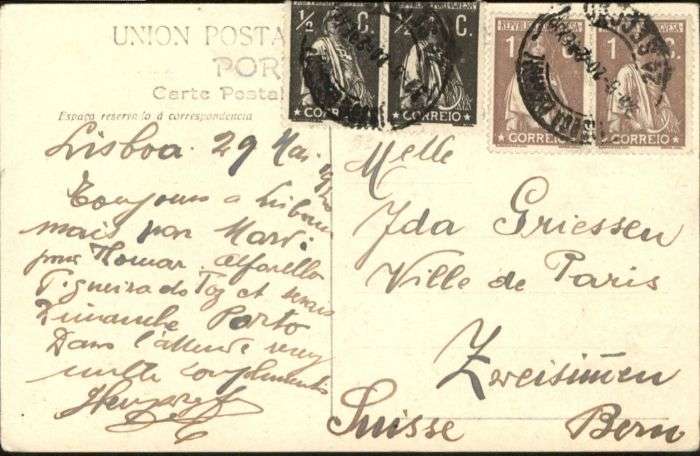 UNION POSTA
PORT
Carte Postal
Espaço reservado á correspondencia
½ C.
CORREIO
½ C.
CORREIO
REPVBLICA PORTVGVESA
1 C.
CORREIO
1 C.
CORREIO
Lisboa. 29 Mai
Toujours a Lisbonne
mais par Mardi
pour Thomar. Alfarello
Figueira da Foz et serais
Dimanche Porto
Dans l'attente
mille compliments
Melle
Ida Griessen
Ville de Paris
Zweisim̄en
Suisse Bern